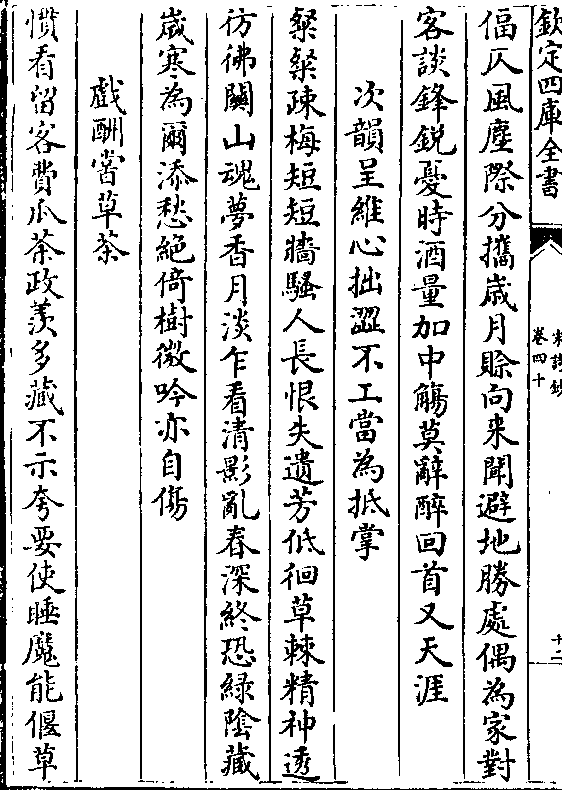 欽定四庫全書
宋詩鈔
卷四十
十二
偪仄風塵際分攜歳月賒向来聞避地勝處偶為家對
客談鋒鋭憂時酒量加中觴莫辭醉回首又天涯
次韻呈維心拙澀不工當為抵掌
粲粲疎梅短短牆騷人長恨失遺芳低徊草棘精神透
彷彿闗山魂夢香月淡乍看清影亂春深終恐緑陰藏
嵗寒為爾添愁絶倚樹微吟亦自傷
戲酬嘗草茶
慣看留客費瓜茶政羨多藏不示夸要使睡魔能偃草